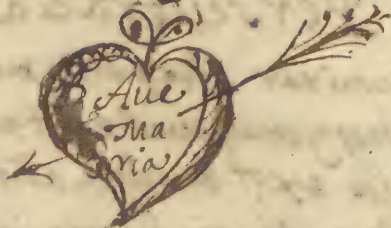 Aue
Ma
ria